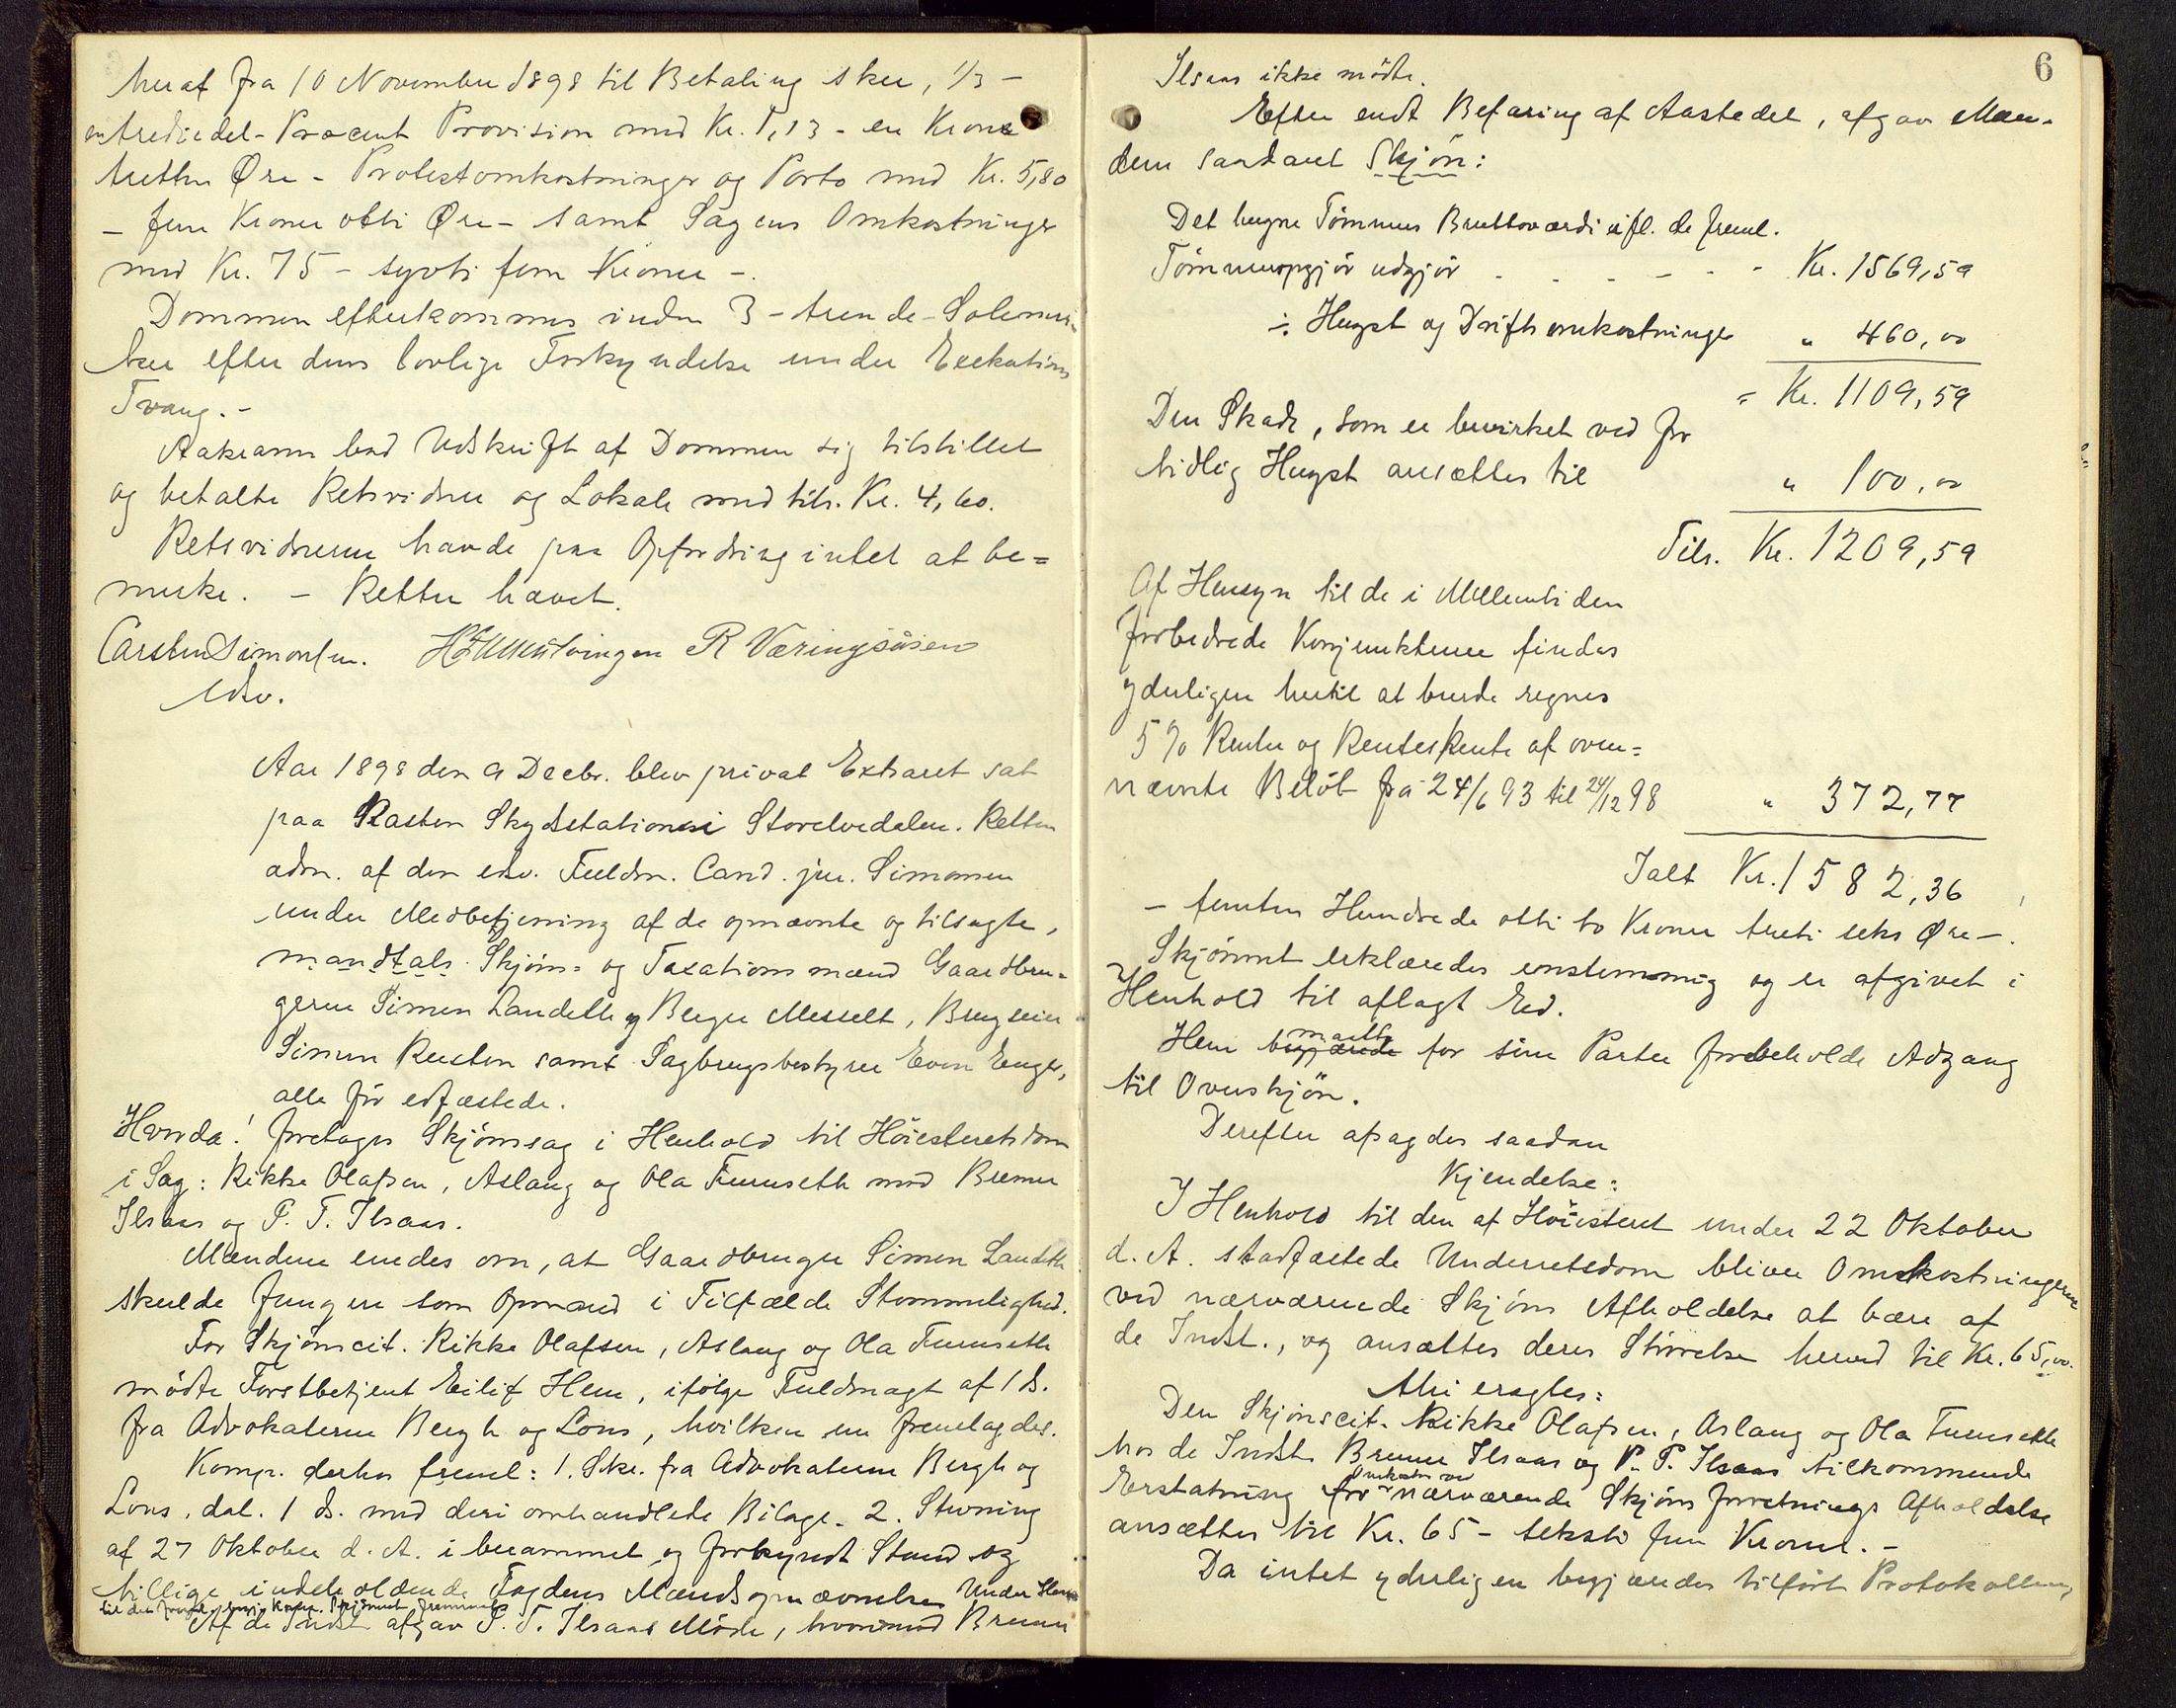 heraf fra 10 November 1898 til Betaling sker, 1/3 -
en trediedel - Procent Provision med Kr. 1,13 - en Krone
tretten Øre - Protestomkostninger og Porto med Kr. 5,80
- fem Kroner otti Øre - samt Sagens Omkostninger
med Kr. 75 - sytti fem Kroner -.
Dommen efterkommes inden 3 - trende - Solemær-
ker efter dens lovlige Forkyndelse under Exekutions
Tvang. -
Aakrann bad Udskrift af Dommen sig tilstillet
og betalte Retsvidner og Lokale med tils. Kr. 4,60.
Retsvidnerne havde paa Opfordring intet at be=
merke. - Retten hævet.
Carsten Simonsen. R Væringsåsen
edsv.
Aar 1898 den 9 Decbr. blev privat Extraret sat
paa Rasten Skydsstation i Storelvedalen. Retten
adm. af den edsv. Fuldm. Cand. jur. Simonsen
under Medbetjening af de opnævnte og tilsagte,
mandtals Skjøns= og Taxationsmænd Gaardbru=
gerne Simen Landeth og Berger Messelt, Brugseier
Simen Rusten samt Sagbrugsbestyrer Even Enger,
alle før edfæstede.
Hvorda! foretages Skjønssag i Henhold til Høiesteretsdom
i Sag: Rikke Olafsen, Aslaug og Ola Furuseth mod Bremer
Ilsaas og P. T. Ilsaas.
Mændene enedes om, at Gaardbruger Simen Landeth
skulde fungere som Opmand i Tilfælde Stemmelighed.
For Skjønscit. Rikke Olafsen, Aslaug og Ola Furuseth
mødte Forstbetjent Eilif Hem, ifølge Fuldmagt af 1 ds.
fra Advokaterne Bergh og Lous, hvilken en fremlagdes.
Komp. derhos freml: 1. Skr. fra Advokaterne Bergh og
Lous, dat. 1 ds. med deri omhandlede Bilage. 2. Stevning
af 27 Oktober d. A. i berammet og forkyndt Stand og
tillige indeholdende Fogdens Mændsopnævnelse. Under Hen
til det freml. Komp. Skjønnet fremmet
Af de Indst. afgav P. T. Ilsaas Møde, hvorimod Bremer
6
Ilsaas ikke mødte.
Efter endt Befaring af Aastedet, afgav Mæn-
dene saadant Skjøn:
Det hugne Tømmers Bruttoværdi ifl. de freml.
Tømmeropgjør udgjør - - - - - - Kr. 1569,59
÷ Hugst og Driftsomkostninger " 460,00
= Kr. 1109,59
Den Skade, som er bevirket ved for
tidlig Hugst ansættes til " 100,00
Tils. Kr. 1209,59
Af Hensyn til de i Mellemtiden
forbedrede Konjunkturer findes
yderligere hertil at burde regnes
5 % Renter og Rentes Rente af oven=
nævnte Beløb fra 24/6 93 til 24/12 98 " 372,77
Ialt Kr. 1582,36
- femten Hundrede otti to Kroner treti seks Øre -.
Skjønnet erklæredes enstemmig og er afgivet i
Henhold til aflagt Ed.
Hem begjærede maatte for sine Parter forbeholde Adgang
til Overskjøn.
Derefter afsagdes saadan
Kjendelse:
I Henhold til den af Høiesteret under 22 Oktober
d. A. stadfæstede Underretsdom bliver Omkostningerne
ved nærværende Skjøns Afholdelse at bære af
de Indst., og ansættes deres Størrelse herved til Kr. 65,00.
Thi eragtes:
Den Skjønscit. Rikke Olafsen, Aslaug og Ola Furuseth
hos de Indst. Bremer Ilsaas og P. T. Ilsaas tilkommende
Erstatning for Omkostn. ved nærværende Skjøns Forretnings Afholdelse
ansættes til Kr. 65 - seksti fem Kroner. -
Da intet yderligere begjæredes tilført Protokollen,